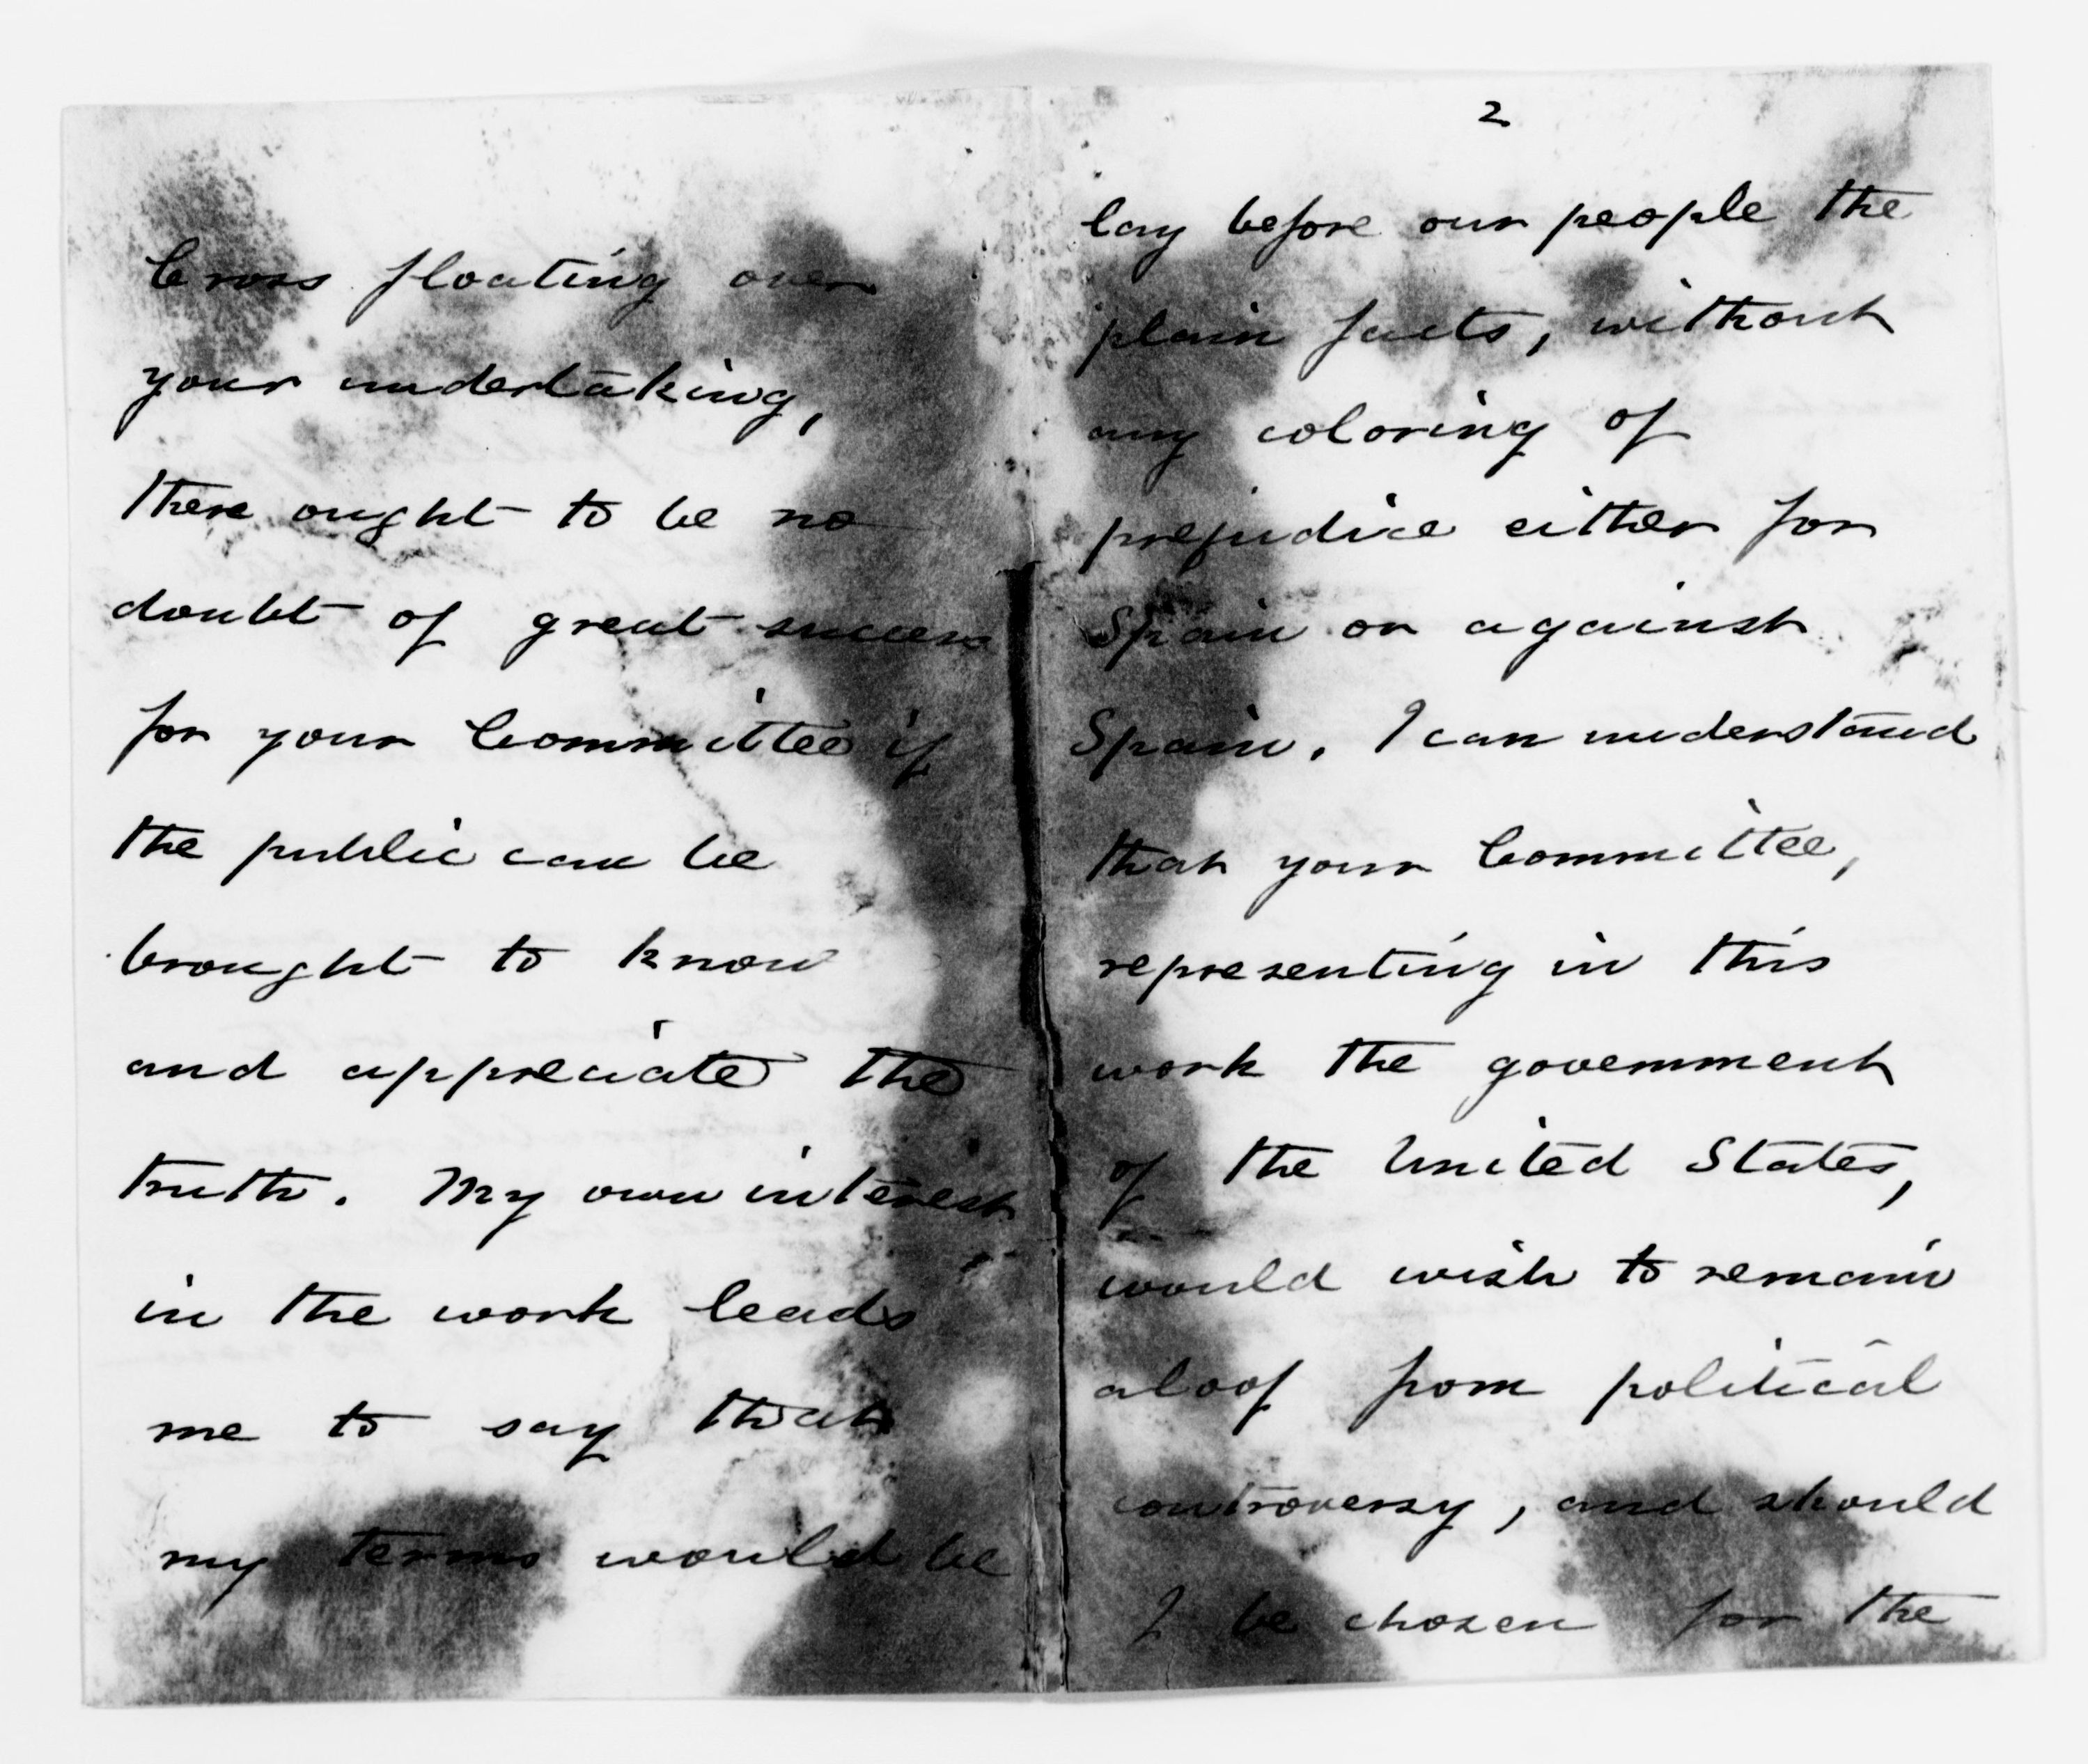 Cross floating over
your undertaking,
there ought to be no
doubt of great success
for your Committee if
the public can be
brought to know
and appreciate the
truth. My own interest
in the work leads
me to say that
my terms would be
2
lay before our people the
plain facts, without
any coloring of
prejudice either for
Spain or against
Spain. I can understand
that your Committee,
representing in this
work the government
of the United States,
would wish to remain
aloof from political
controversy, and should
I be chosen for the